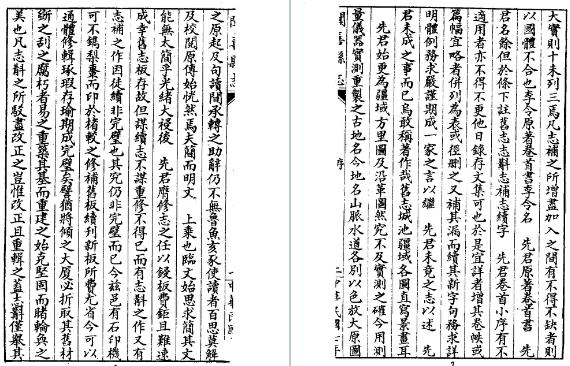 之原起及句讀間承轉之助辭仍不無魯魚亥豕使讀者百思莫解
及校閱原傳始恍然焉夫簡而明文　上乘也臨文始思求簡其文
能無太簡乎光緒大祲後　先君膺修志之任以鋟板費鉅且難速
成幸舊志板存故但謀續志不謀重修不得已而有志斠之作又有
志補之作因徒續非完璧也其究仍非完璧而已今茲邑有石印機
可不鐫梨棗而印於楮較之修補舊板續列新板所費尤省今可以
通體修輯琢瑕存瑜期成完璧矣譬猶將傾之大厦必折取其舊材
斲之刮之腐朽者易之重築其基而重建之始克堅固而睹輪奐之
美也凡志斠之所駁盡改正之豈惟改正且重輯之蓋志斠僅舉其
大實則十未列三焉凡志補之所增盡加入之間有不得不缺者則
以國體不合也李令原著卷首書李令名　先君原著卷首書　先
君名餘但於條下註舊志志斠志補志續字　先君卷首小序有不
適用者亦不得不更他日錄存文集可也於是宜詳者增其卷帙或
篇幅宜略者併列為表或徑刪之又補其漏而續其新字句務求詳
明體例務求嚴謹期成一家之言以繼　先君未竟之志以述　先
君未成之事而已焉敢稱著作哉舊志城池疆域各圖直寫景畫耳
先君始更為疆域方里圖及沿革圖然究不及實測之確今用測
量儀器實測重製之古地名今地名山脈水道各別以色放大原圖
聞喜縣志
序